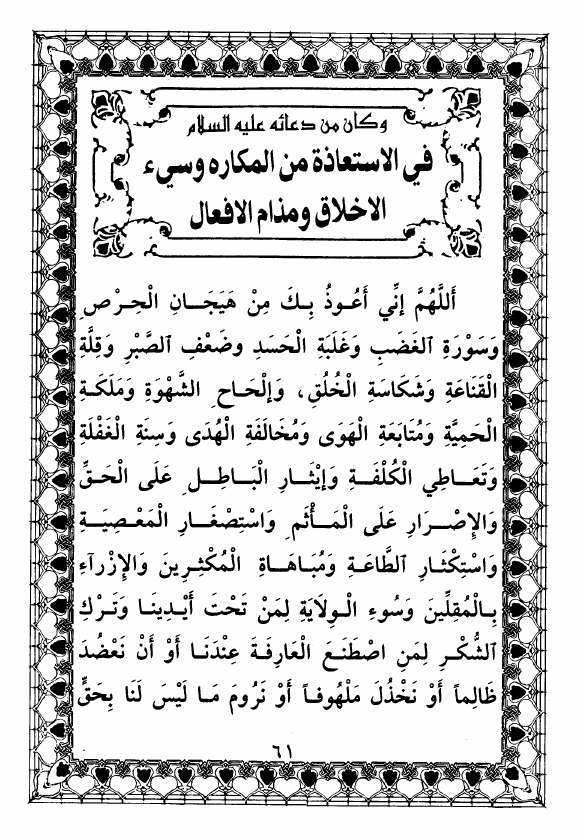 وكان من دعائه عليه السلام
في الاستعاذة من المكاره وسيء
الاخلاق ومذام الافعال
أَللَّهُمَّ إنِّي أَعُوذُ بِكَ مِنْ هَيَجَانِ الْحِرْصِ
وَسَوْرَةِ الغَضَبِ وَغَلَبَةِ الْحَسَدِ وضَعْفِ الصَّبْرِ وَقِلَّةِ
الْقَنَاعَةِ وَشَكَاسَةِ الْخُلُقِ، وَإلْحَاحِ الشَّهْوَةِ وَمَلَكَةِ
الْحَمِيَّةِ وَمُتَابَعَةِ الْهَوَى وَمُخَالَفَةِ الْهُدَى وَسِنَةِ الْغَفْلَةِ
وَتَعَاطِي الْكُلْفَةِ وَإيْثَارِ الْبَاطِلِ عَلَى الْحَقِّ
وَالإصْرَارِ عَلَى الْمَأْثَمِ وَاسْتِصْغَارِ الْمَعْصِيَةِ
وَاسْتِكْثَارِ الطَّاعَةِ وَمُبَاهَاةِ الْمُكْثِرِينَ وَالإزْرآءِ
بِالْمُقِلِّينَ وَسُوءِ الْوِلاَيَةِ لِمَنْ تَحْتَ أَيْدِينَا وَتَرْكِ
الشُّكْرِ لِمَنِ اصْطَنَعَ الْعَارِفَةَ عِنْدَنَا أَوْ أَنْ نَعْضُدَ
ظَالِماً أَوْ نَخْذُلَ مَلْهُوفاً أَوْ نَرُومَ مَا لَيْسَ لَنَا بِحَقٍّ
٦١